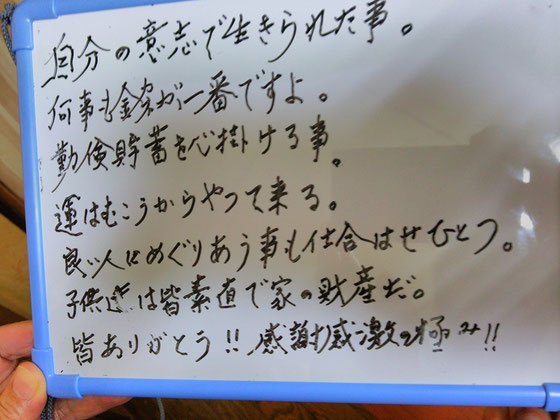 自分の意志で生きられた事。
何事も金が一番ですよ。
勤倹貯蓄を心掛ける事。
運はむこうからやって来る。
良い人にめぐりあう事も仕合はせひとつ。
子供達は皆素直で家の財産だ。
皆ありがとう!! 感謝感激の極み!!